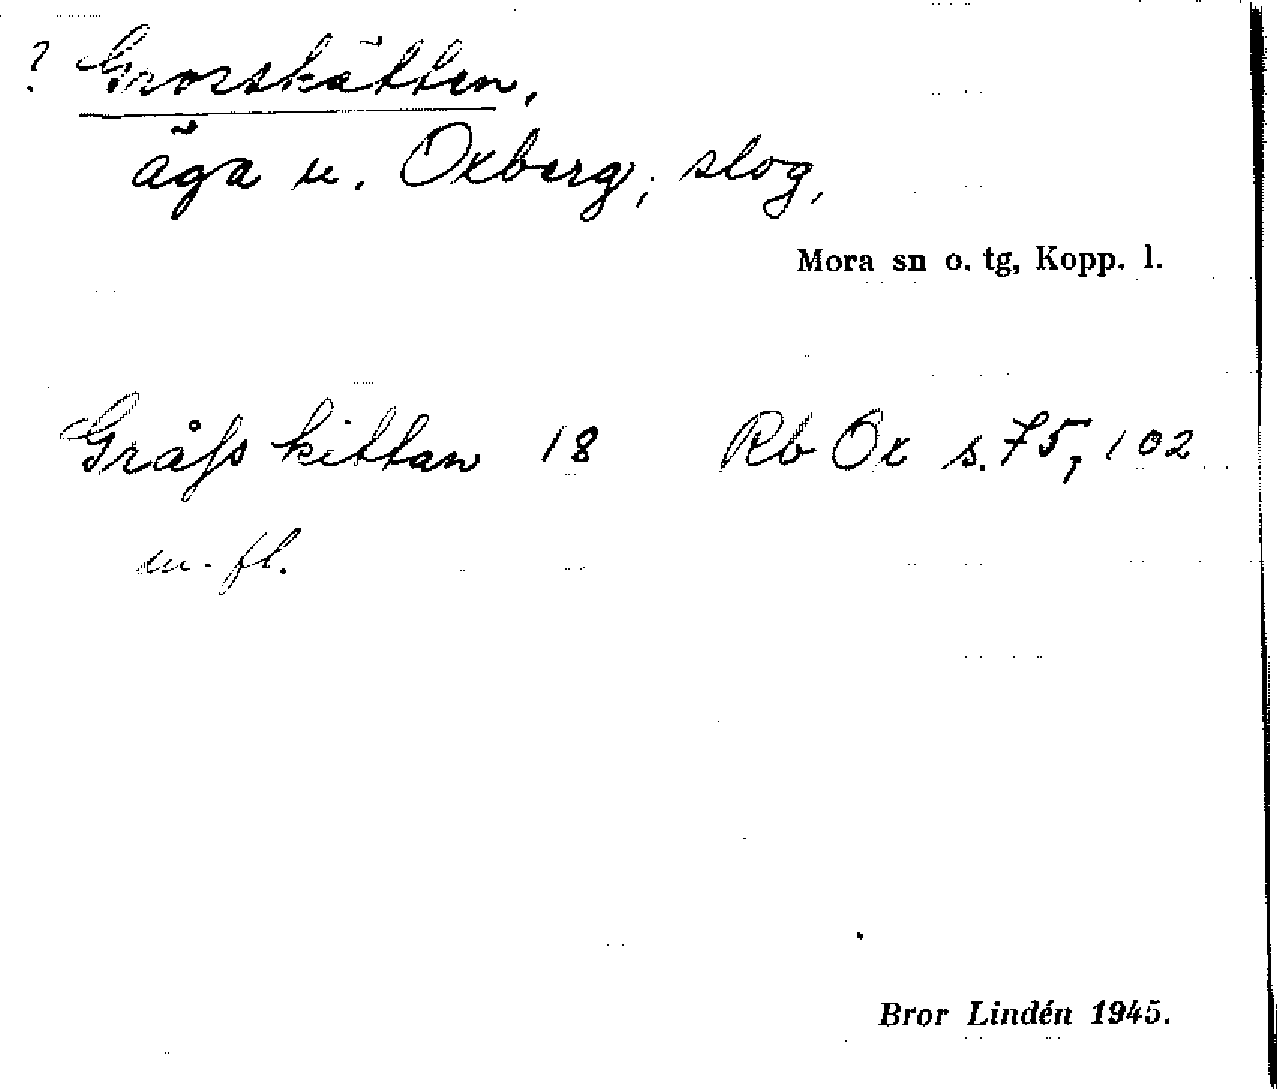 ? Grosskätten,
äga u. Oxberg; slog,
Mora sn o. tg, Kopp. l.
Gråfs kittan 18 Rb Ox s. 75, 102
m. fl.
Bror Lindén 1945.